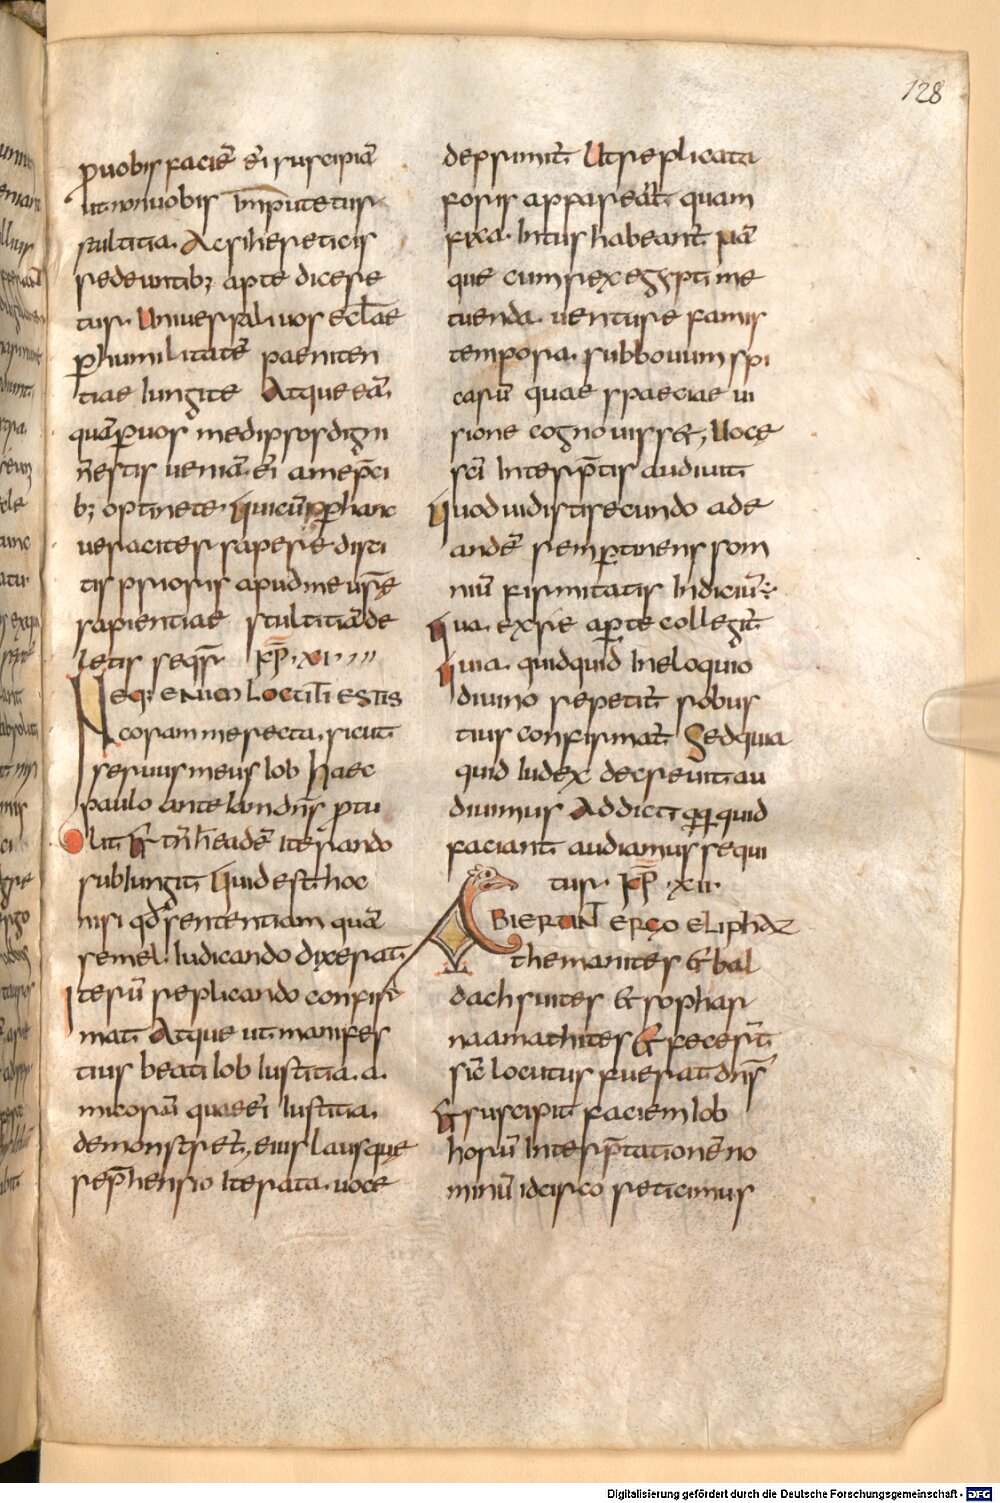 128
ꝓ uobis faciē ei suscipiā
ut non uobis Imputetur
stultitia. Ac si hereticis
redeuntib; aperte dicere
tur. Uniuersali uos ecl̄ae
ꝑ humilitatē paeniten
tiae Iungite Atque eā,
quā ꝑ uos me dipsos digni
n̄ estis ueniā ei' a me p̄ci
b; optinete. qui cū ꝑ hanc
ueraciter sapere disci
tis prioris apud me usr̄e
sapientiae stultitiā de
letis seqr̄ kp̄.xi.
Neq; enim locuti estis
coram me recta, sicut
seruus meus Iob Haec
paulo ante Iam dn̄s ꝓtu
lit Et tn̄ h eadē iterando
subIungit, quid est hoc
nisi qd̄ sententiam quā
semel Iudicando dixerat,
Iterū replicando confir
mat. Atque ut manifes
tius beati Iob Iustitia. a.
micorū quae ei Iustitia,
demonstret, eius laus que
rep̄hensio Iterata. uoce
depsimit. Ut replicata
foris appareat. quam
fixa. Intus habeant. hā
que cum rex egypti me
tuenda uenture famis
tempora. sub bouum spi
carū quae spaeciae ui
sione cognouisset, Uoce
sc̄i Interp̄tis audiuit
quod uidisti secundo ad e
andē rem ꝑtinens som
niū firmitatis Indiciū:
qua. ex re aꝑte collegit.
quia. quidquid In eloquio
diuino repetit. robus
tius confirmat. Sed quia
quid Iudex decreuit au
diuimus Addicti qq quid
faciant audiamus sequi
tur. kp̄.xii.
Abierunt ergo eliphaz
themanites et bal
dach suites et sophar
naamathites Et fecer̄t
sic̄ locutus fuerat dn̄s
Et suscipit faciem Iob
horū Interp̄tationē no
minū idcirco reticimus
Digitalisierung gefördert durch die Deutsche Forschungsgemeinschaft - DFG